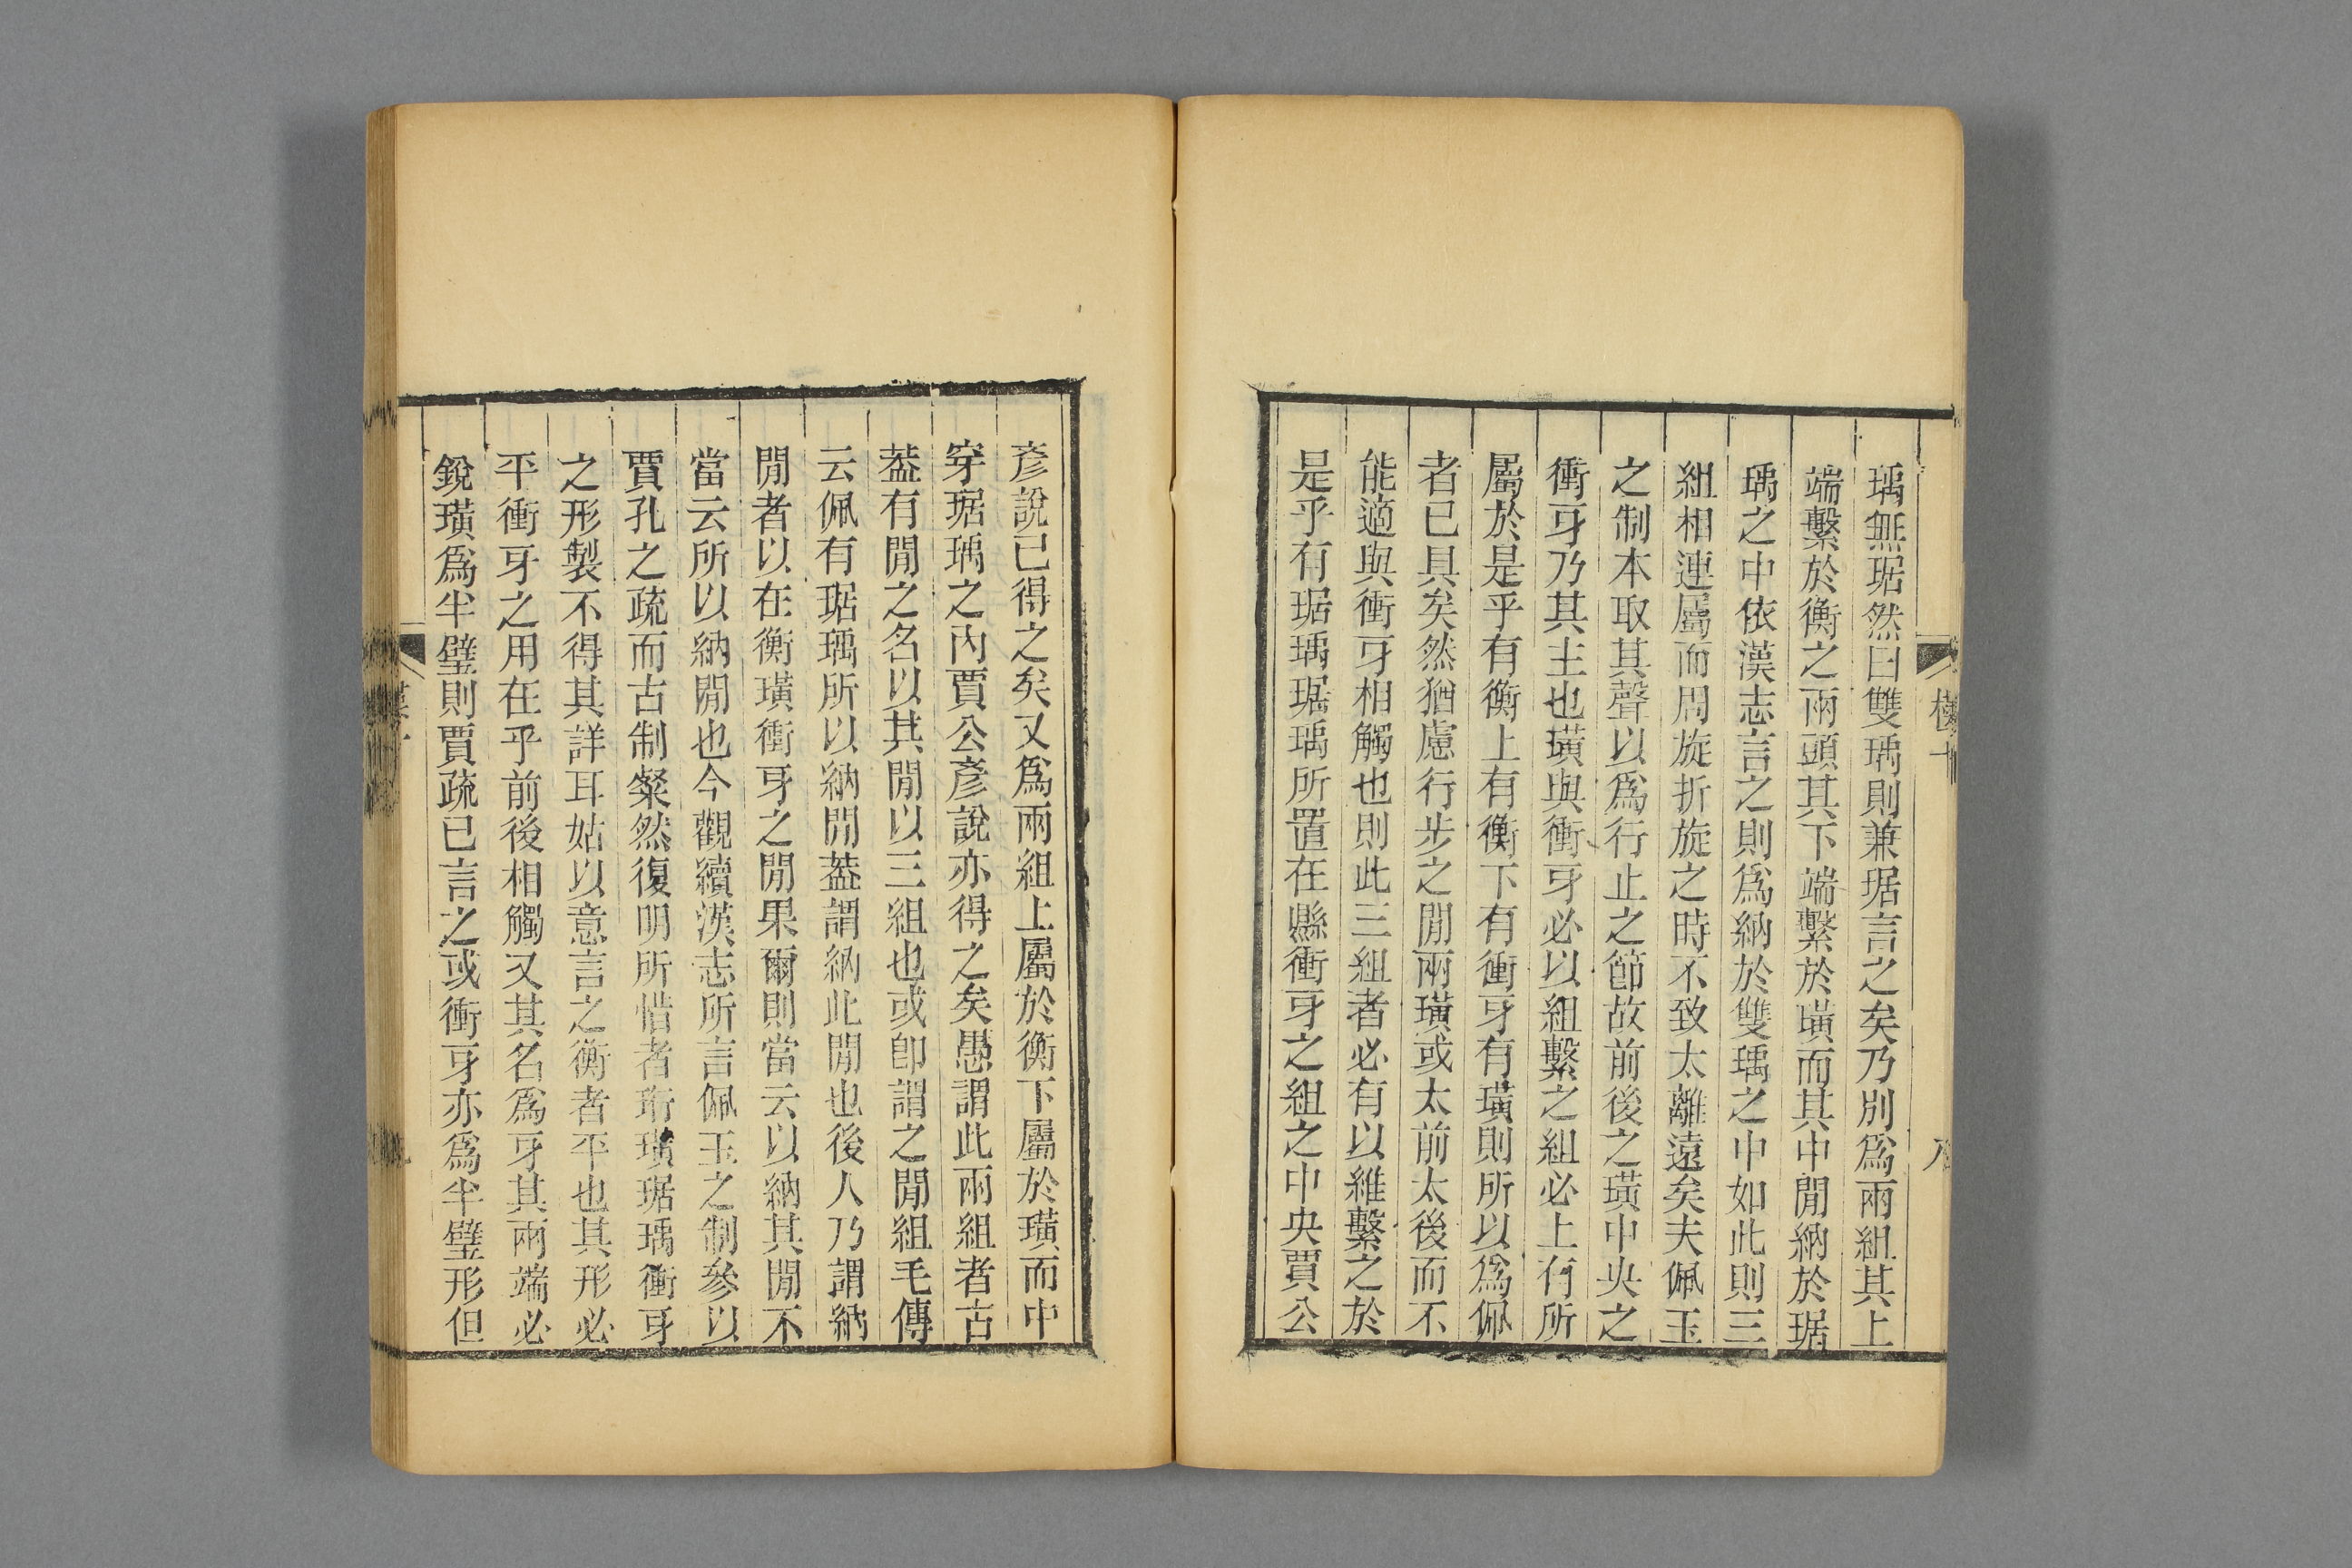 瑀無琚然曰雙瑀則兼琚言之矣乃別爲兩組其上
端繫於衡之兩頭其下端繫於璜而其中閒納於琚
瑀之中依漢志言之則爲納於雙瑀之中如此則三
組相連屬而周旋折旋之時不致太離遠矣夫佩玉
之制本取其聲以爲行止之節故前後之璜中央之
衝牙乃其主也璜與衝牙必以組繫之組必上有所
屬於是乎有衡上有衡下有衝牙有璜則所以爲佩
者已具矣然猶慮行步之閒兩璜或太前太後而不
能適與衝牙相觸也則此三組者必有以維繫之於
是乎有琚瑀琚瑀所置在縣衝牙之組之中央賈公
彥說已得之矣又爲兩組上屬於衡下屬於璜而中
穿琚瑀之內賈公彥說亦得之矣愚謂此兩組者古
葢有閒之名以其閒以三組也或卽謂之閒組毛傳
云佩有琚瑀所以納閒葢謂納此閒也後人乃謂納
閒者以在衡璜衝牙之閒果爾則當云以納其閒不
當云所以納閒也今觀續漢志所言佩玉之制參以
賈孔之疏而古制粲然復明所惜者珩璜琚瑀衝牙
之形製不得其詳耳姑以意言之衡者平也其形必
平衝牙之用在乎前後相觸又其名爲牙其兩端必
銳璜爲半璧則賈疏已言之或衝牙亦爲半璧形但